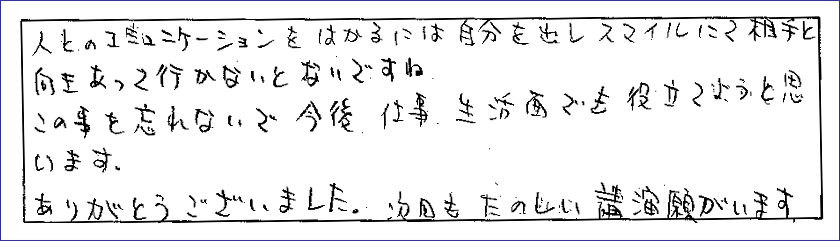 人とのコミュニケーションをはかるには自分を出しスマイルにて相手と
向きあって行かないとないですね
この事を忘れないで今後、仕事、生活面でも役立てようと思
います。
ありがとうございました。次回もたのしい講演願がいます